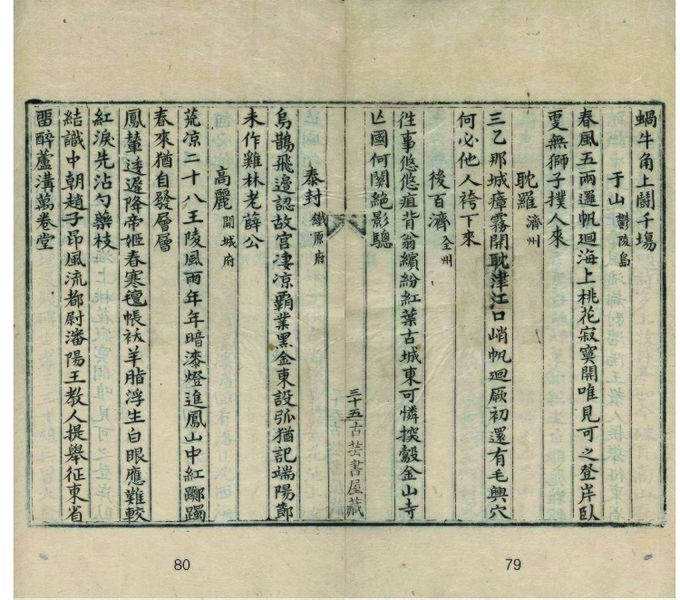 蝸牛角上鬪千塲
于山 鬱陵島
春風五兩邏帆迴海上桃花寂寞開唯見可之登岸臥
更無獅子撲人來
耽羅 濟州
三乙那城瘴霧開耽津江口峭帆迴厥初還有毛興穴
何必他人袴下來
後百濟 全州
徃事悠悠疽背翁繽紛紅葉古城東可憐揬轂金山寺
亾國何關絶影驄
三十五古芸書屋藏
泰封 鐵原府
烏鵲飛邊認故宮凄凉霸業黑金東設弧猶記端陽節
未作雞林老薛公
高麗 開城府
荒凉二十八王陵風雨年年暗漆燈進鳳山中紅躑躅
春來猶自發層層
鳳輦逶遲降帝姬春寒氊帳袚羊脂浮生白眼應難較
紅淚先沾勺藥枝
結識中朝趙子昂風流都尉瀋陽王教人提舉征東省
畱醉蘆溝萬卷堂
80
79